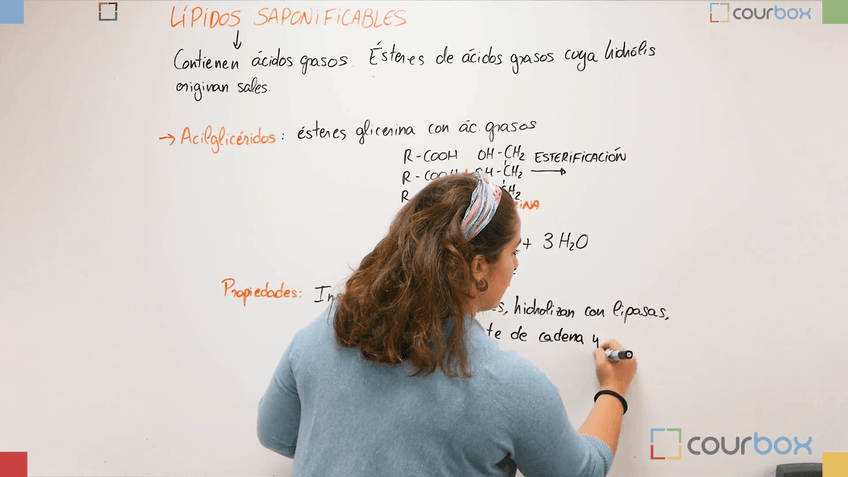 courbox
LÍPIDOS SAPONIFICABLES
Contienen ácidos grasos. Ésteres de ácidos grasos cuya hidrólis
originan sales.
→ Acilglicéridos: ésteres glicerina con ác. grasos
R-COOH OH-CH2 ESTERIFICACIÓN
R-COOH CH2
R
+ 3H2O
Propiedades: hidrolizan con lipasas,
de cadena y
courbox